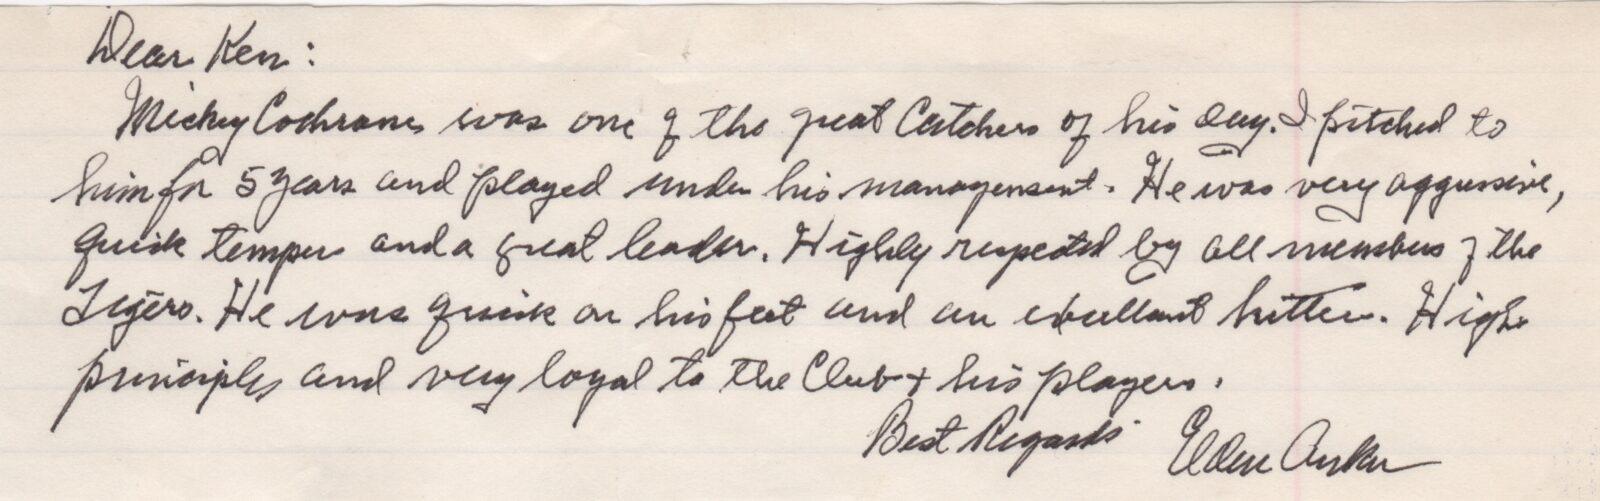 Dear Ken:
Mickey Cochrane was one of the great Catchers of his day. I pitched to
him for 5 years and played under his management. He was very aggressive,
quick temper and a great leader. Highly respected by all members of the
Tigers. He was quick on his feet and an excellent hitter. High
principles and very loyal to the Club + his players.
Best Regards Elden Auker